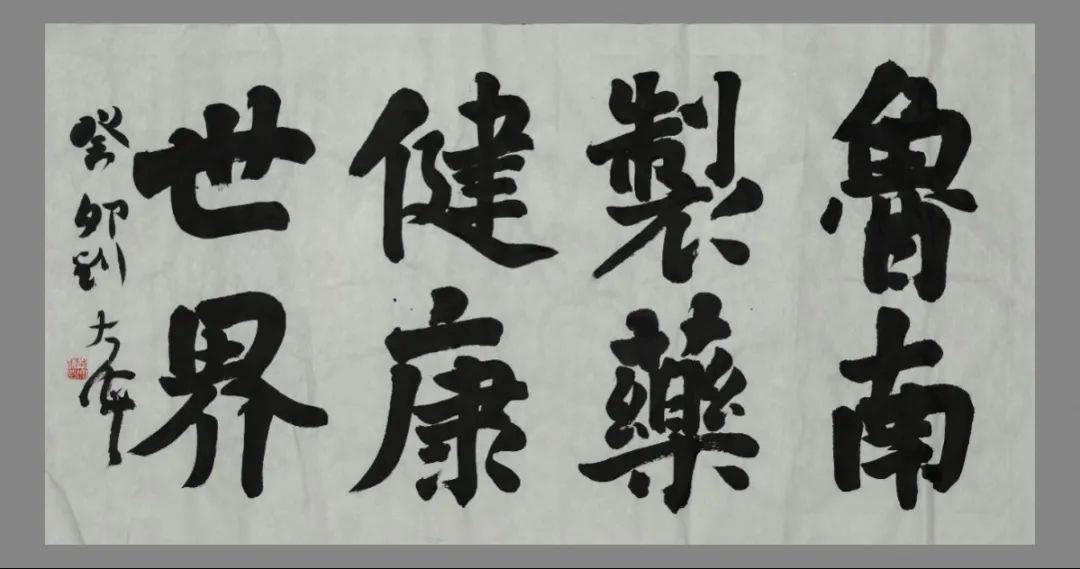 魯南
製藥
健康
世界
癸卯劉大